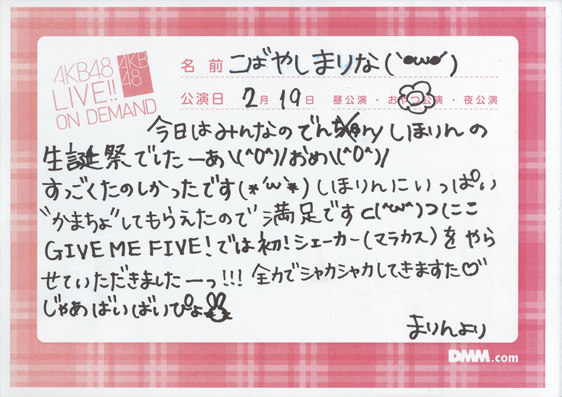 AKB48
LIVE!!
ON DEMAND
AKB
48
名前 こばやしまりな(`•ω•´)
公演日 2月19日 昼公演・おやつ公演・夜公演
今日はみんなのでんしほりんの
生誕祭でしたーあ\(^0^)/おめ\(^0^)/
すっごくたのしかったです(*´ω`*) しほりんにいっぱい
"かまちょ"してもらえたので満足ですc(^ω^)つにこ
GIVE ME FIVE!では初!シェーカー(マラカス)をやら
せていただきましたーっ!!! 全力でシャカシャカしてきますた♡
じゃあばいばいぴょ
まりんより
DMM.com